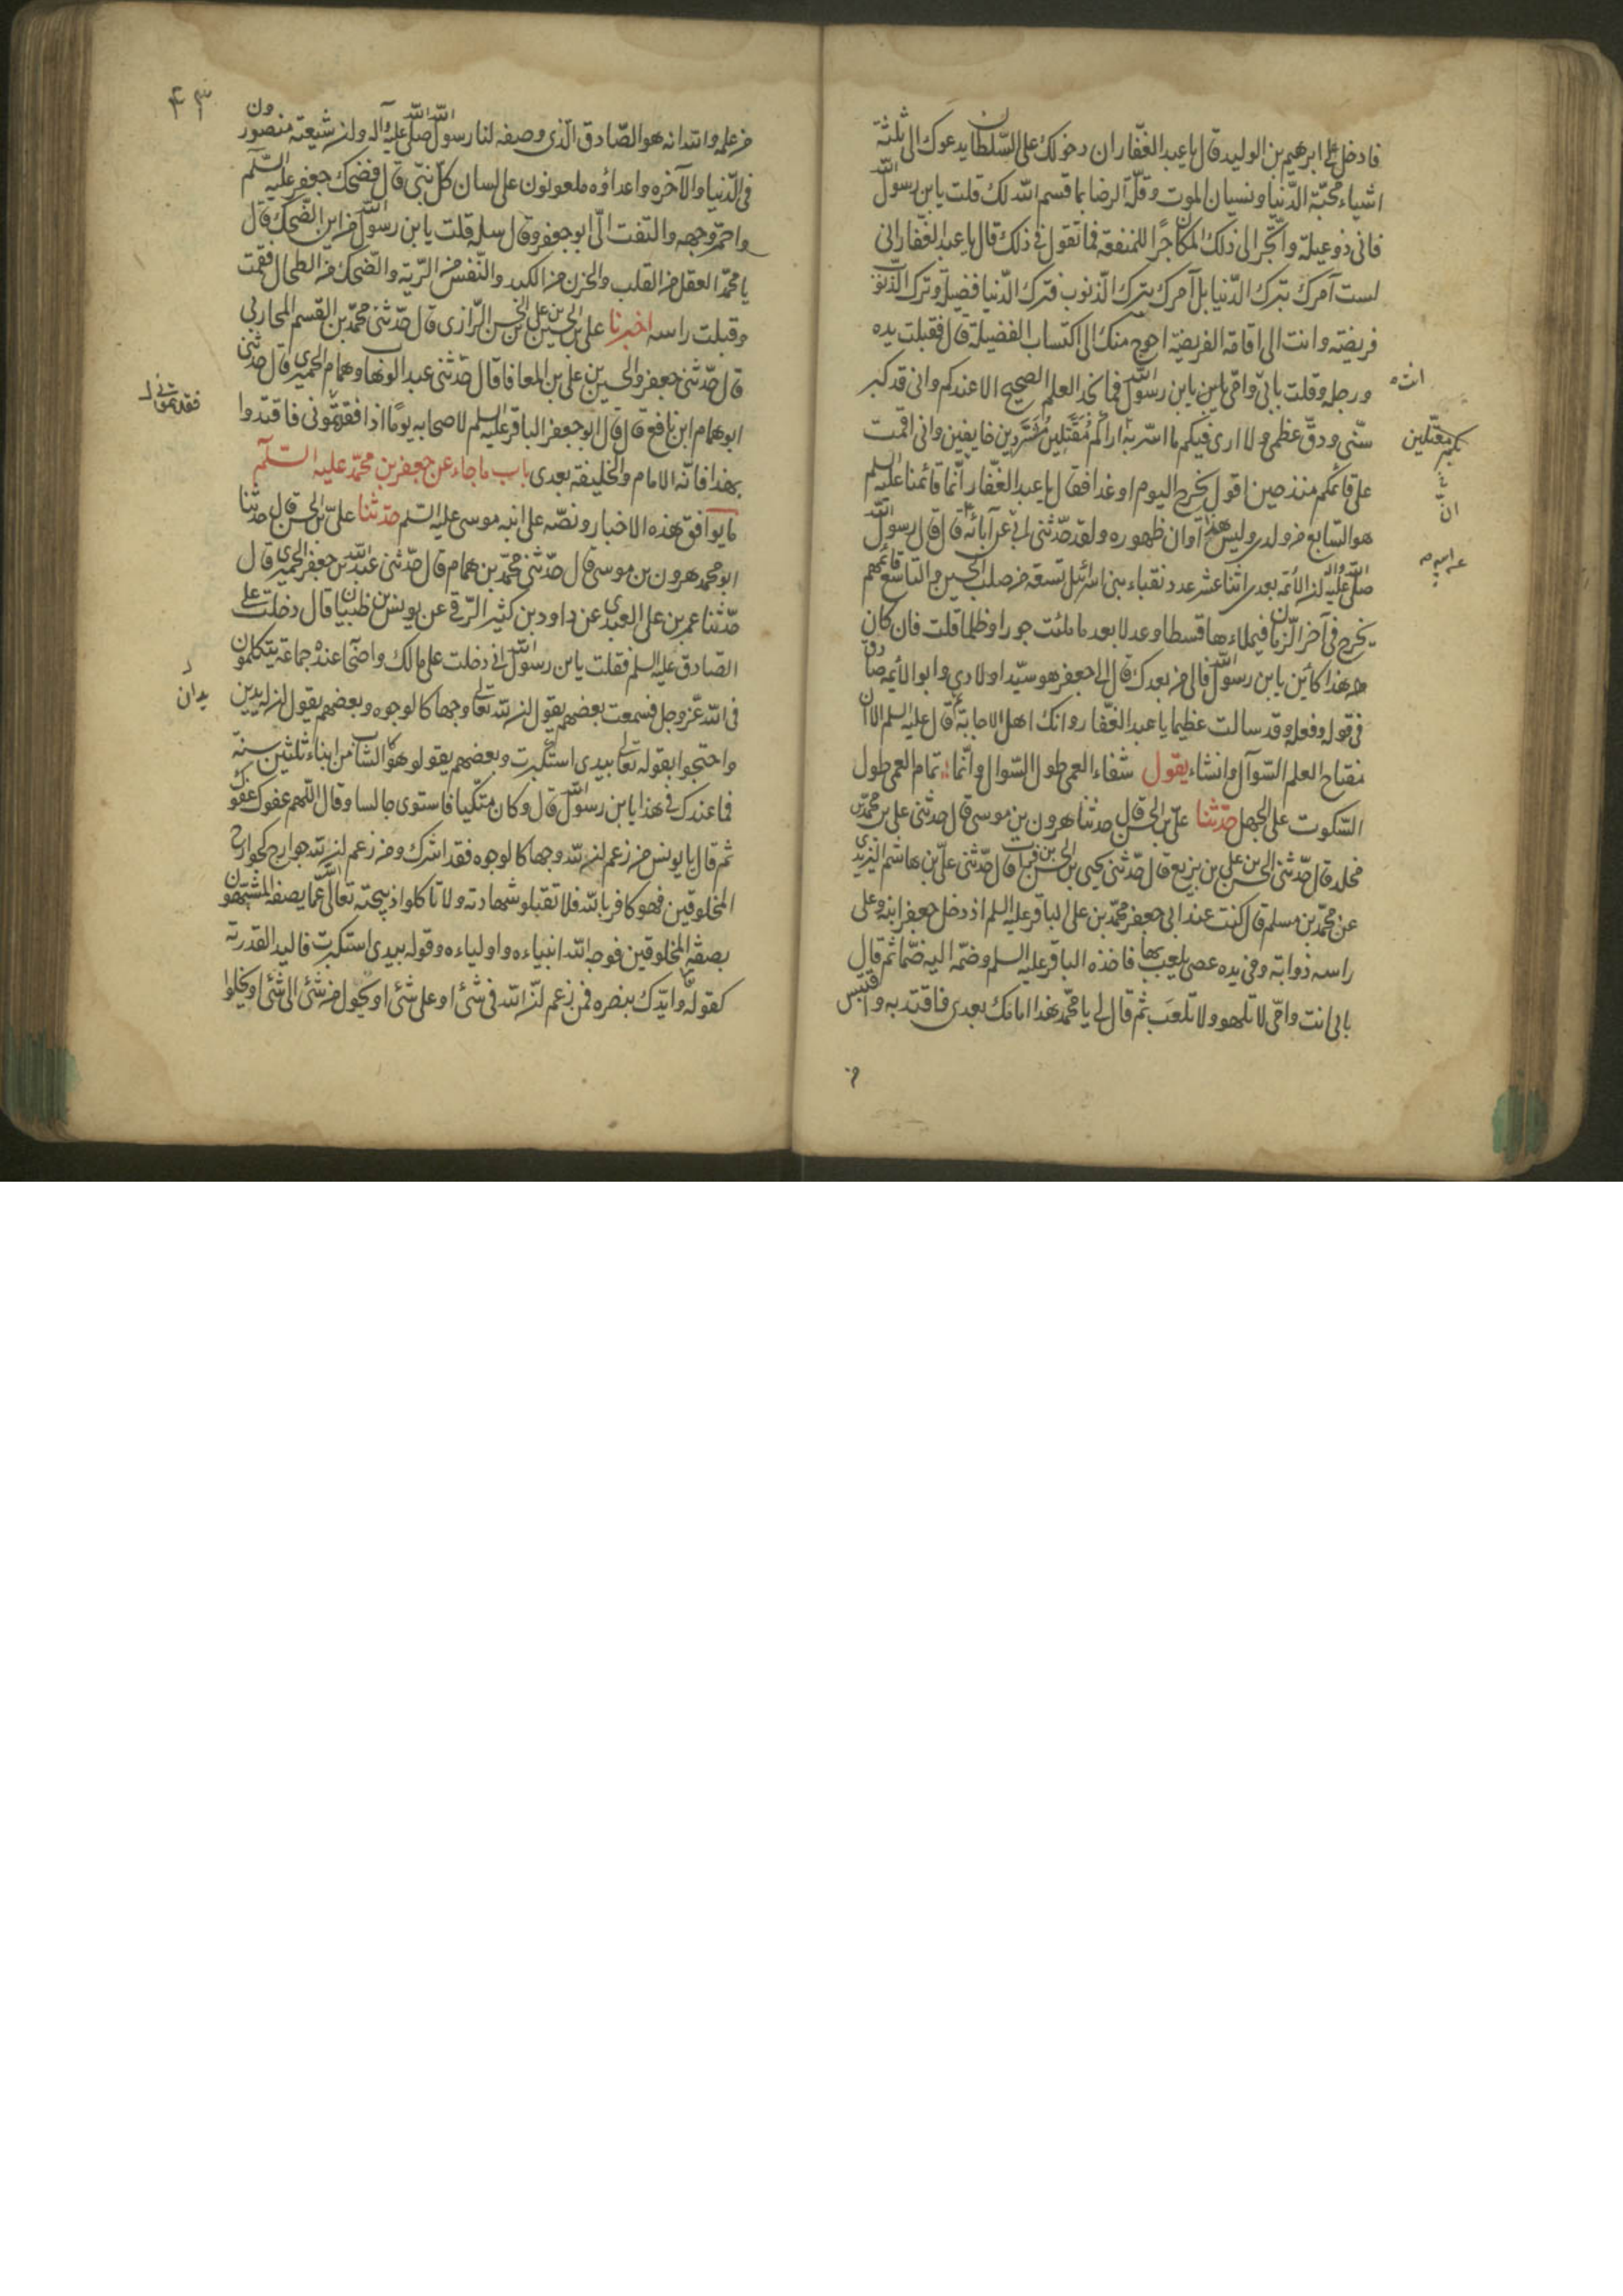 فادخل على ابرهيم بن الوليد قال يا عبد الغفّار ان دخولك على السّلطان يدعوك الى ثلثة
اشياء محبّة الدّنيا ونسيان الموت وقلّة الرضا بما قسم الله لك قلت يابن رسول الله
فانى ذو عيلة واتّجر الى ذلك المكان لجرّ المنفعة فما تقول فى ذلك قال يا عبد الغفّار انى
لست آمرك بترك الدّنيا بل آمرك بترك الذّنوب فترك الدّنيا فضيلة وترك الذّنوب
فريضة وانت الى اقامة الفريضة احوج منك الى اكتساب الفضيلة قال فقبلت يده
ورجله وقلت بابى وامّى يابن رسول الله فما نجد العلم الصحيح الا عندكم وانى قد كبر
سنّى ودقّ عظمى ولا ارى فيكم ما اسرّ به اراكم مقتّلين مشرّدين خايفين وانى اقمت
على قائمكم منذ حين اقول يخرج اليوم او غدا فقال يا عبد الغفّار انّما قائمنا عليه السلم
هو السّابع من ولدى وليس هذا آوان ظهوره ولقد حدّثنى ابى عن آبائه قال قال رسول الله
صلى الله عليه واله ان الأئمّة بعدى اثنا عشر عدد نقباء بنى اسرائيل تسعة من صلب الحسين والتاسع قائمهم
يخرج فى آخر الزّمان فيملاءها قسطا وعدلا بعد ما ملئت جورا وظلما قلت فان كان
هذا كائن يابن رسول الله فالى من بعدك قال الى جعفر هو سيّد اولادى وابو الأئمّه صادق
فى قوله وفعله وقد سالت عظيما يا عبد الغفّار وانك اهل الاجابة ثم قال عليه السلم الا ان
مفتاح العلم السّوآل وانشاء يقول شفاء العمى طول السّوال وانّما تمام العمى طول
السّكوت على الجهل حدّثنا علىّ بن الحسن قال حدثنا هرون بن موسى قال حدثنى على بن محمّد بن
مخلد قال حدّثنى الحسن بن على بن بزيع قال حدّثنى يحيى بن الحسن بن فرات قال حدّثنى علىّ بن هاشم البريدى
عن محمّد بن مسلم قال كنت عند ابى جعفر محمّد بن على الباقر عليه السلم اذ دخل جعفر ابنه وعلى
راسه ذوابة وفى يده عصى يلعب بها فاخذه الباقر عليه السلم وضمّه اليه ضمّا ثم قال
بابى انت وامّى لا تلهو ولا تلعب ثم قال لى يا محمّد هذا امامك بعدى فاقتد به واقتبس
انت
مقتّلين
انّ
من علمه والله انه هو الصّادق الّذى وصفه لنا رسول الله صلى الله عليه وآله وان شيعته منصورون
فى الدّنيا والآخره واعداؤه ملعونون على لسان كلّ نبى قال فضحك جعفر عليه السّلم
واحمرّ وجهه والتفت الىّ ابو جعفر وقال سله قلت يابن رسول الله من اين الضّحك قال
يا محمّد العقل من القلب والحزن من الكبد والنّفس من الرّية والضّحك من الطحال فقمت
وقبلت راسه اخبرنا على بن الحسين بن على بن الحسن الرّازى قال حدّثنى محمّد بن القسم المحاربى
قال حدّثنى جعفر والحسين بن على بن المعافا قال حدّثنى عبد الوهاب وهمام الحميرى قال حدثنى
ابو همام ابن نافع قال قال ابو جعفر الباقر عليه السلم لاصحابه يومًا اذا افتقدتمونى فاقتدوا
بهذا فانّه الامام والخليفة بعدى باب ما جاء عن جعفر بن محمّد عليه السّلم
ما يوافق هذه الاخبار ونصّه على ابنه موسى عليه السّلم حدّثنا علىّ بن الحسن قال حدثنا
ابو محمّد هرون بن موسى قال حدّثنى محمّد بن همام قال حدّثنى عبد الله بن جعفر الحميرى قال
حدّثنا عمر بن على العبدى عن داود بن كثير الرّقى عن يونس بن ظبيان قال دخلت على
الصّادق عليه السلم فقلت يابن رسول الله انى دخلت على مالك واصحابه عنده جماعة يتكلمون
فى الله عزّ وجل فسمعت بعضهم يقول ان لله تعالى وجها كالوجوه وبعضهم يقول ان له يدين
واحتجوا بقوله تعالى بيدى استكبرت وبعضهم يقولو هو كالشاب من ابناء ثلثين سنة
فما عندك فى هذا يابن رسول الله قال وكان متّكيا فاستوى جالسا وقال اللّهم عفوك عفوك
ثم قال يا يونس من زعم ان لله وجها كالوجوه فقد اشرك ومن زعم ان لله جوارح كجوارح
المخلوقين فهو كافر بالله فلا تقبلو شهادته ولا تاكلوا ذبيحته تعالى الله عمّا يصفه المشبّهون
بصفة المخلوقين فوجه الله انبياءه واولياءه وقوله بيدى استكبرت فاليد القدرة
كقوله وايّدك بنصره فمن زعم انّ الله فى شئ او على شئ او يحول من شئ الى شئ او يخلوا
يدان